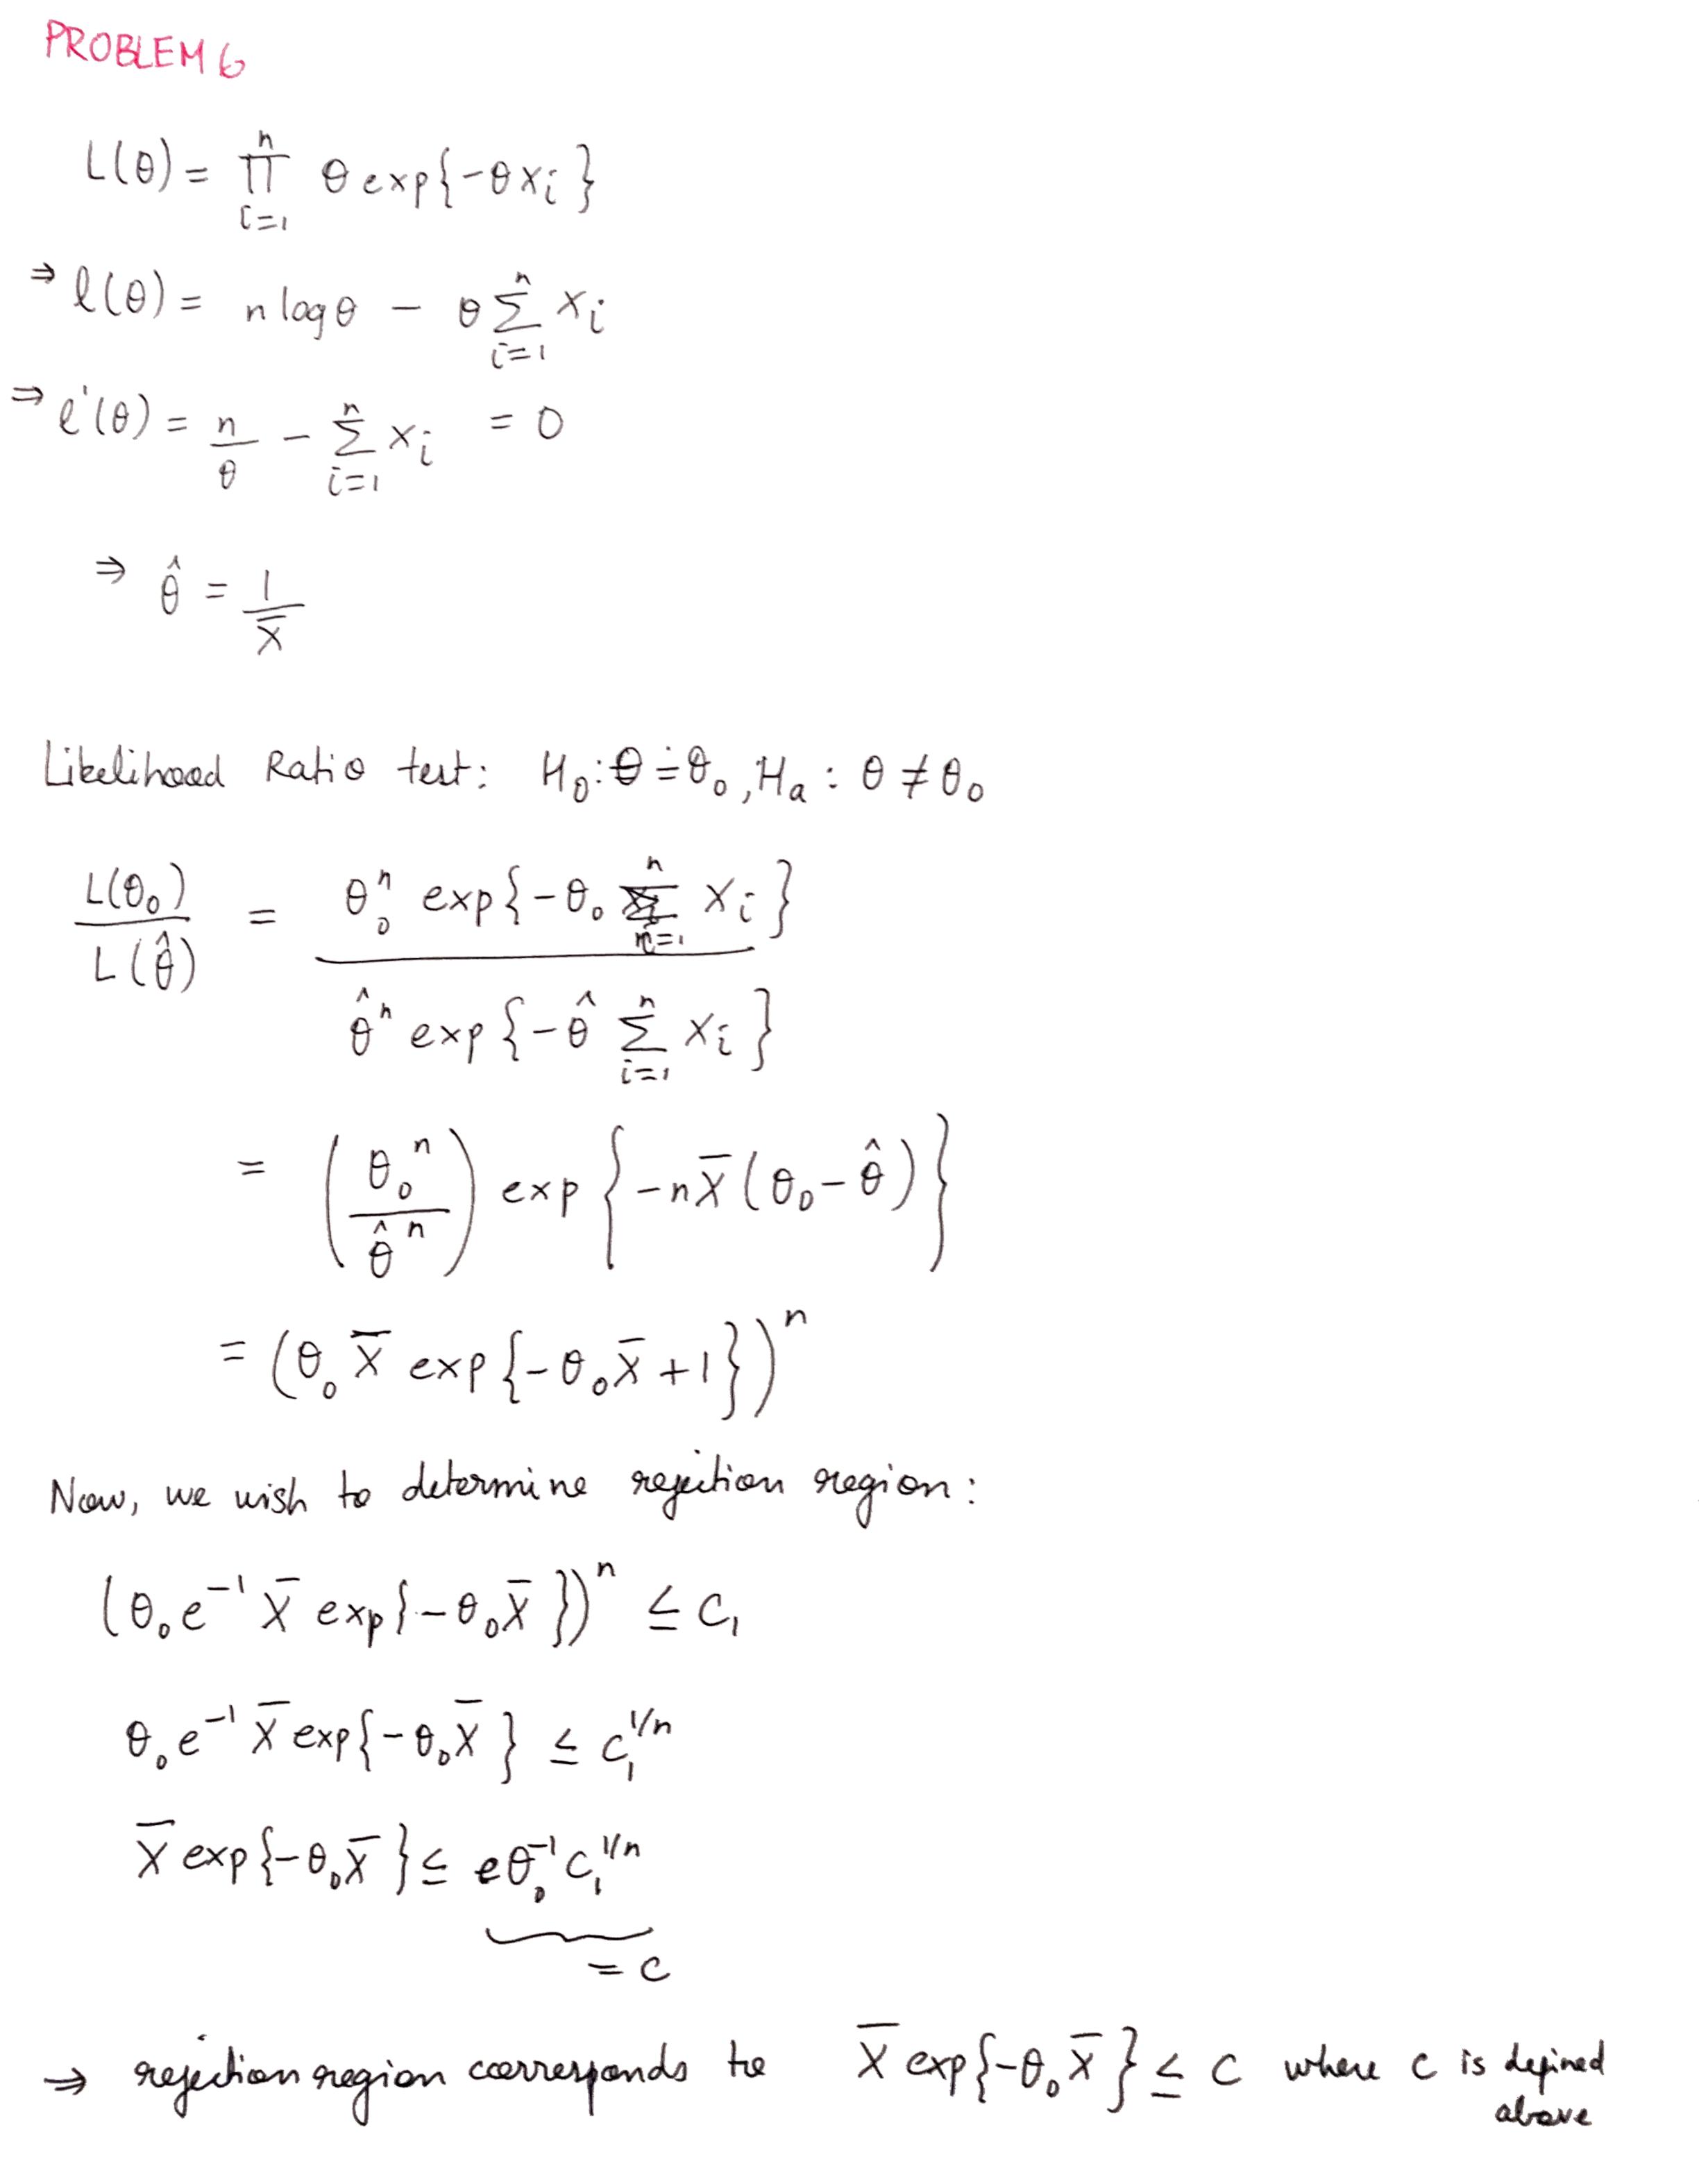 PROBLEM 6
L(θ) = ∏_{i=1}^{n} θ exp{-θx_i}
⇒ l(θ) = n log θ - θ ∑_{i=1}^{n} x_i
⇒ l'(θ) = n/θ - ∑_{i=1}^{n} x_i = 0
⇒ θ̂ = 1/X̄
Likelihood Ratio test: H_0: θ = θ_0, H_a: θ ≠ θ_0
L(θ_0)/L(θ̂) = θ_0^n exp{-θ_0 ∑_{i=1}^{n} X_i} / θ̂^n exp{-θ̂ ∑_{i=1}^{n} X_i}
= (θ_0^n / θ̂^n) exp{-nX̄(θ_0 - θ̂)}
= (θ_0 X̄ exp{-θ_0 X̄ + 1})^n
Now, we wish to determine rejection region:
(θ_0 e^{-1} X̄ exp{-θ_0 X̄})^n ≤ c_1
θ_0 e^{-1} X̄ exp{-θ_0 X̄} ≤ c_1^{1/n}
X̄ exp{-θ_0 X̄} ≤ e θ_0^{-1} c_1^{1/n}
= c
⇒ rejection region corresponds to X̄ exp{-θ_0 X̄} ≤ c where c is defined
above